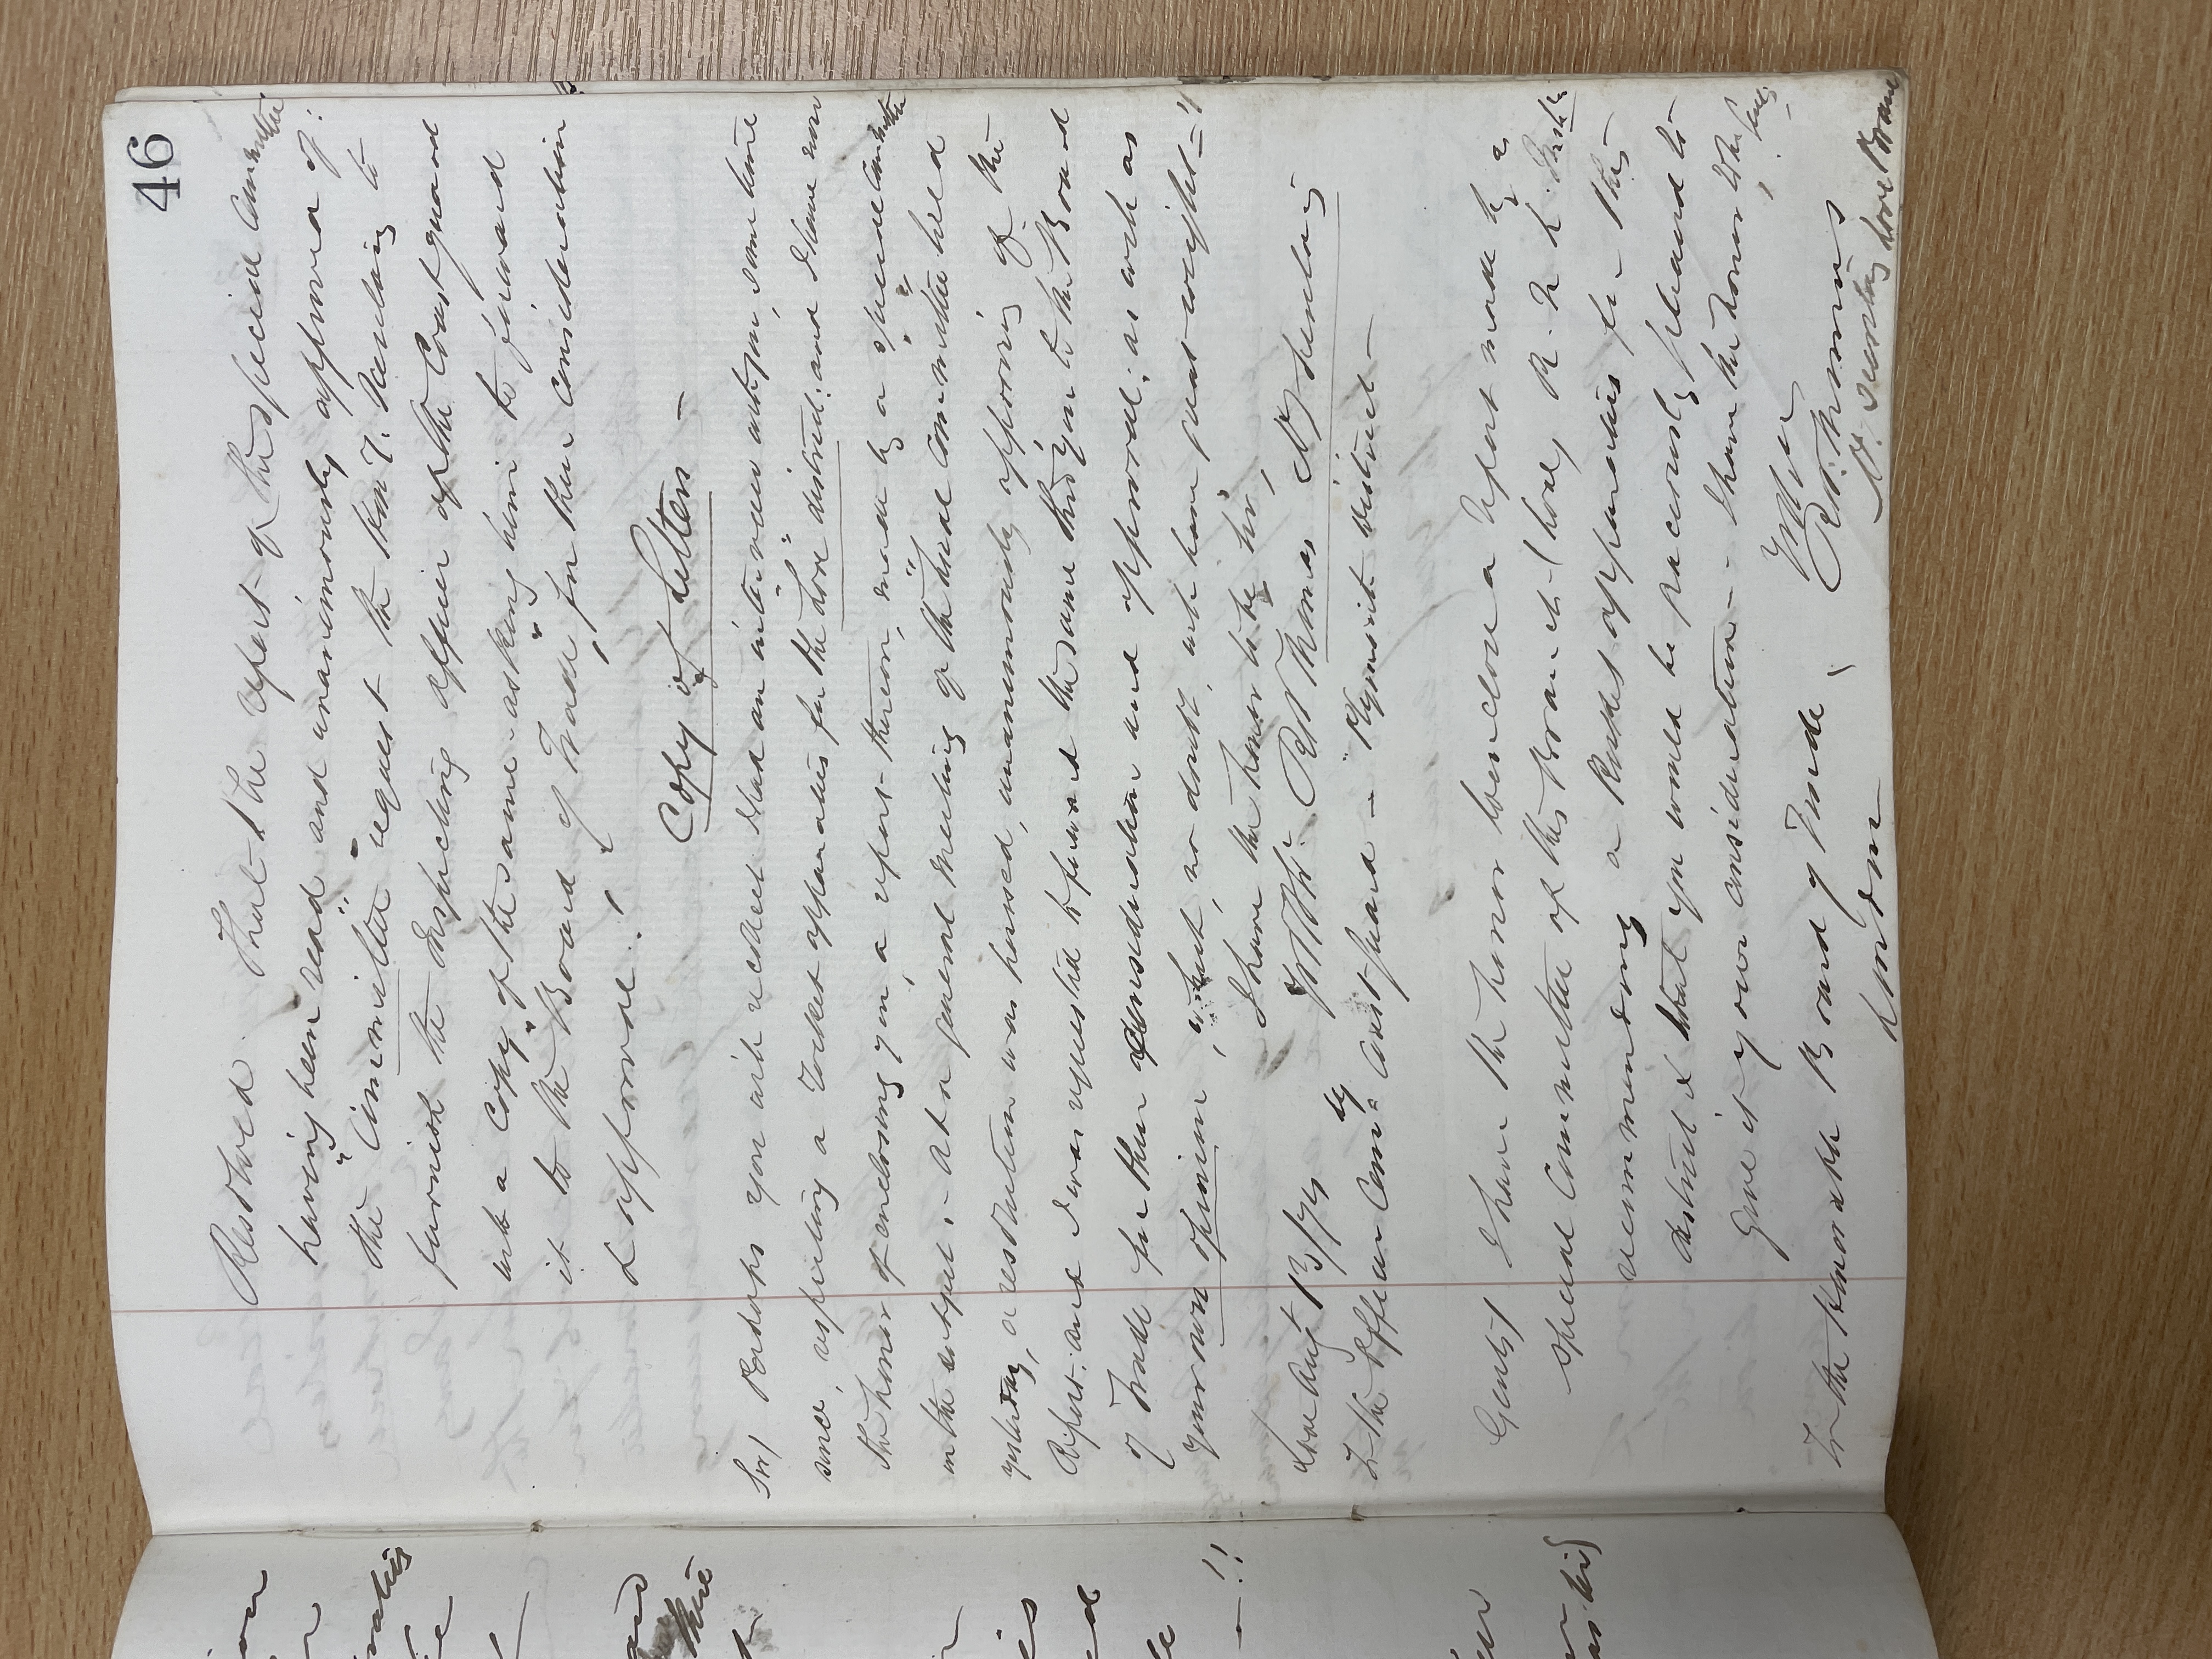 46
Resolved. That the report of the special Committee
having been read and unanimously approved of:
the "Committee" request the Hon'y. Secretary to
furnish the Inspecting officer of the Coast guard
with a "Copy" of the same - asking him to forward
it to the "Board of Trade" for their consideration
& approval!
Copy of Letters -
Sir/ Perhaps you will recollect I had an interview with you, some time
since, respecting a Rocket apparatus for the "Looe" district: and I have now
the honor of enclosing you, a report thereon, made by a "special Committee"
on the subject. - At a general meeting of the "Local Committee" held
yesterday, a resolution was passed, unanimously approving of the
Report: and I was requested to forward the same thro' you to the Board
of Trade for their consideration and approval; as with as
your own opinion, which, no doubt, will have great weight - !!
I have the honor to be Sir,
Looe Augt 13/74 R Thomas, Hy Secretary
To the Officer Comdg Coast Guard - "Plymouth District -
Gents/ I have the honor to enclose a Report made by a
special Committee of this Branch (Looe) R. N. L. Instn
recommending a Rocket apparatus for this
district & trust you would be graciously pleased to
give it your consideration - I have the honor to be, Gents,
R. Thomas
Hy. Secretary Looe Branch
To the Honorable Board of Trade
London